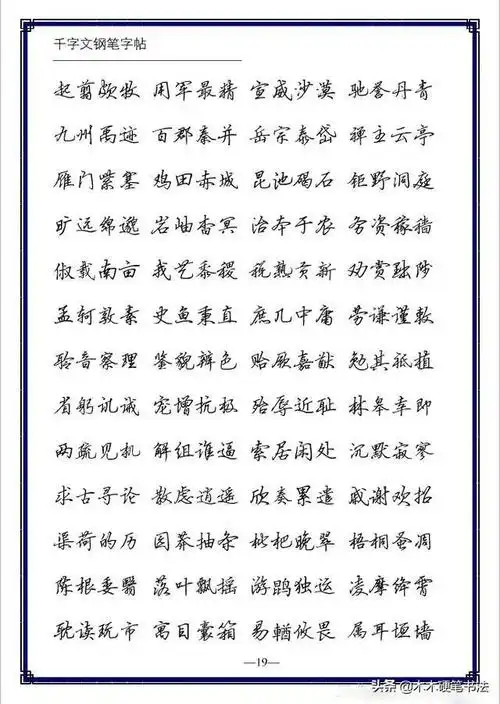 千字文钢笔字帖
起翦颇牧 用军最精 宣威沙漠 驰誉丹青
九州禹迹 百郡秦并 岳宗泰岱 禅主云亭
雁门紫塞 鸡田赤城 昆池碣石 钜野洞庭
旷远绵邈 岩岫杳冥 治本于农 务资稼穑
俶载南亩 我艺黍稷 税熟贡新 劝赏黜陟
孟轲敦素 史鱼秉直 庶几中庸 劳谦谨敕
聆音察理 鉴貌辨色 贻厥嘉猷 勉其祗植
省躬讥诫 宠增抗极 殆辱近耻 林皋幸即
两疏见机 解组谁逼 索居闲处 沉默寂寥
求古寻论 散虑逍遥 欣奏累遣 戚谢欢招
渠荷的历 园莽抽条 枇杷晚翠 梧桐蚤凋
陈根委翳 落叶飘摇 游鹍独运 凌摩绛霄
耽读玩市 寓目囊箱 易輶攸畏 属耳垣墙
—19—
头条 @木木硬笔书法